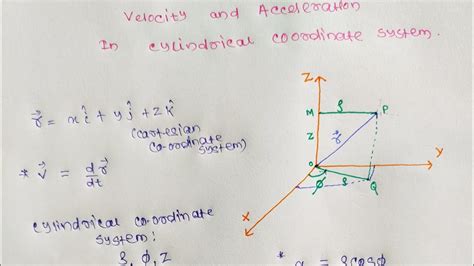 Velocity and Acceleration
In cylindrical coordinate system.
Z
M
ρ
P
z
r⃗
O
Y
φ
ρ
Q
X
r⃗ = xî + yĵ + zk̂
(Cartesian
co-ordinate
system)
* v⃗ = dr⃗/dt
cylindrical co-ordinate
system:
ρ, φ, z
* x = ρcosφ